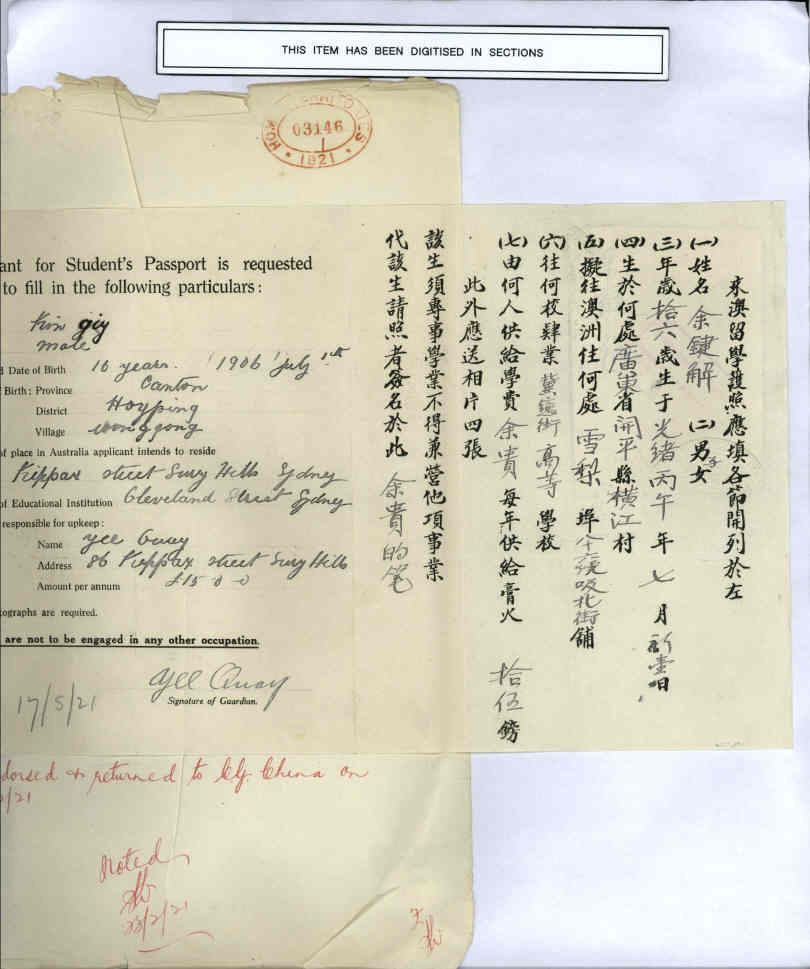 THIS ITEM HAS BEEN DIGITISED IN SECTIONS
HOME
03146
1
1921
ant for Student's Passport is requested
to fill in the following particulars :
Kin giy
male
d Date of Birth 16 years. 1906 July 1st
Birth : Province Canton
District Hoyping
Village Wong gong
of place in Australia applicant intends to reside
Kippax street Surry Hills Sydney
of Educational Institution Cleveland Street Sydney
responsible for upkeep :
Name Yee Quay
Address 86 Kippax street Surry Hills
Amount per annum £15 0 0
ographs are required.
are not to be engaged in any other occupation.
Yee Quay
Signature of Guardian.
17/5/21
dorsed & returned to Clg. China on
/21
Noted
23/2/21
來澳留學護照應填各節開列於左
(一)姓名 余鍵解 (二)男女
(三)年歲拾六歲生于光緒丙午年七月初壹日
(四)生於何處廣東省開平縣橫江村
(五)擬往澳洲住何處 雪梨 埠 號 北街舖
(六)往何校肄業 街 高等 學校
(七)由何人供給學費 余貴 每年供給膏火 拾伍鎊
此外應送相片四張
該生須專事學業不得兼營他項事業
代該生請照者簽名於此 余貴的笔